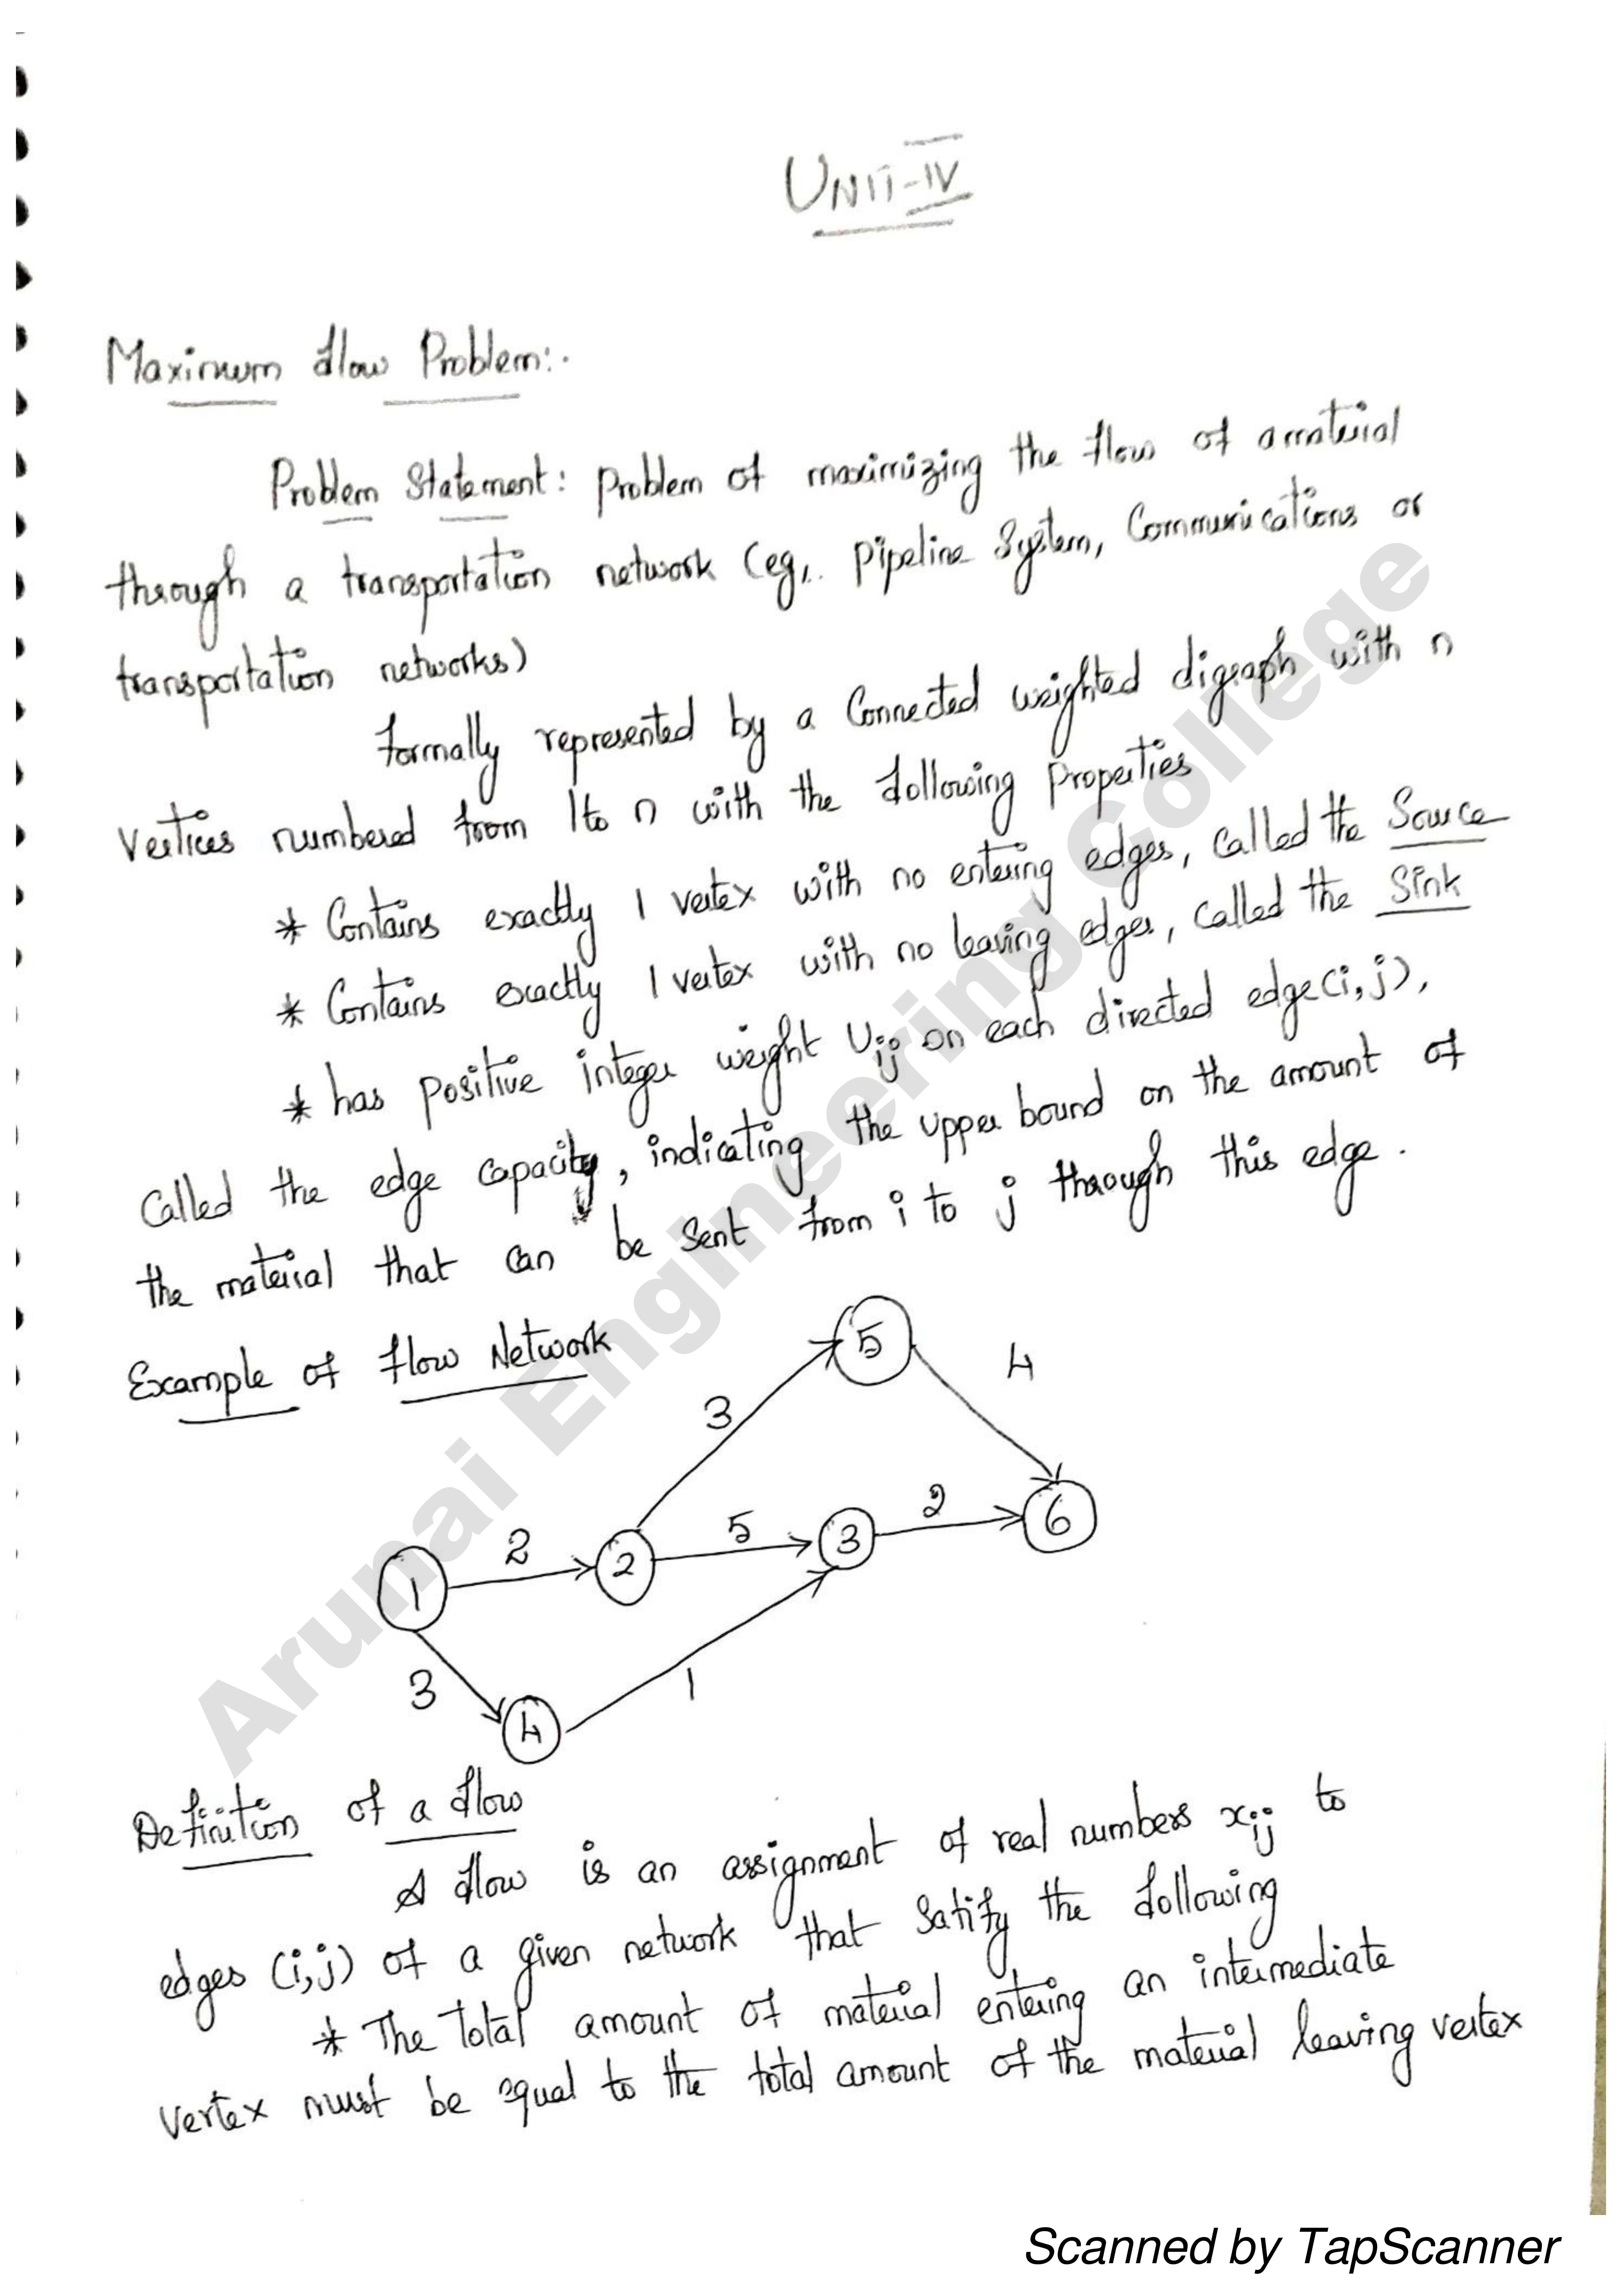 UNIT-IV
Maximum flow Problem:-
Problem Statement: problem of maximizing the flow of a material
through a transportation network (eg,. pipeline System, Communications or
transportation networks)
formally represented by a Connected weighted digraph with n
Vertices numbered from 1 to n with the following Properties
* Contains exactly 1 vertex with no entering edges, called the Source
* Contains exactly 1 vertex with no leaving edges, called the Sink
* has positive integer weight Uij on each directed edge(i,j),
Called the edge capacity, indicating the upper bound on the amount of
the material that can be sent from i to j through this edge.
Example of flow Network
5
4
3
2
5
3
2
6
1
2
3
4
1
Definition of a flow
A flow is an assignment of real numbers xij to
edges (i,j) of a given network that satify the following
* The total amount of material entering an intermediate
vertex must be equal to the total amount of the material leaving vertex
Arunai Engineering College
Scanned by TapScanner